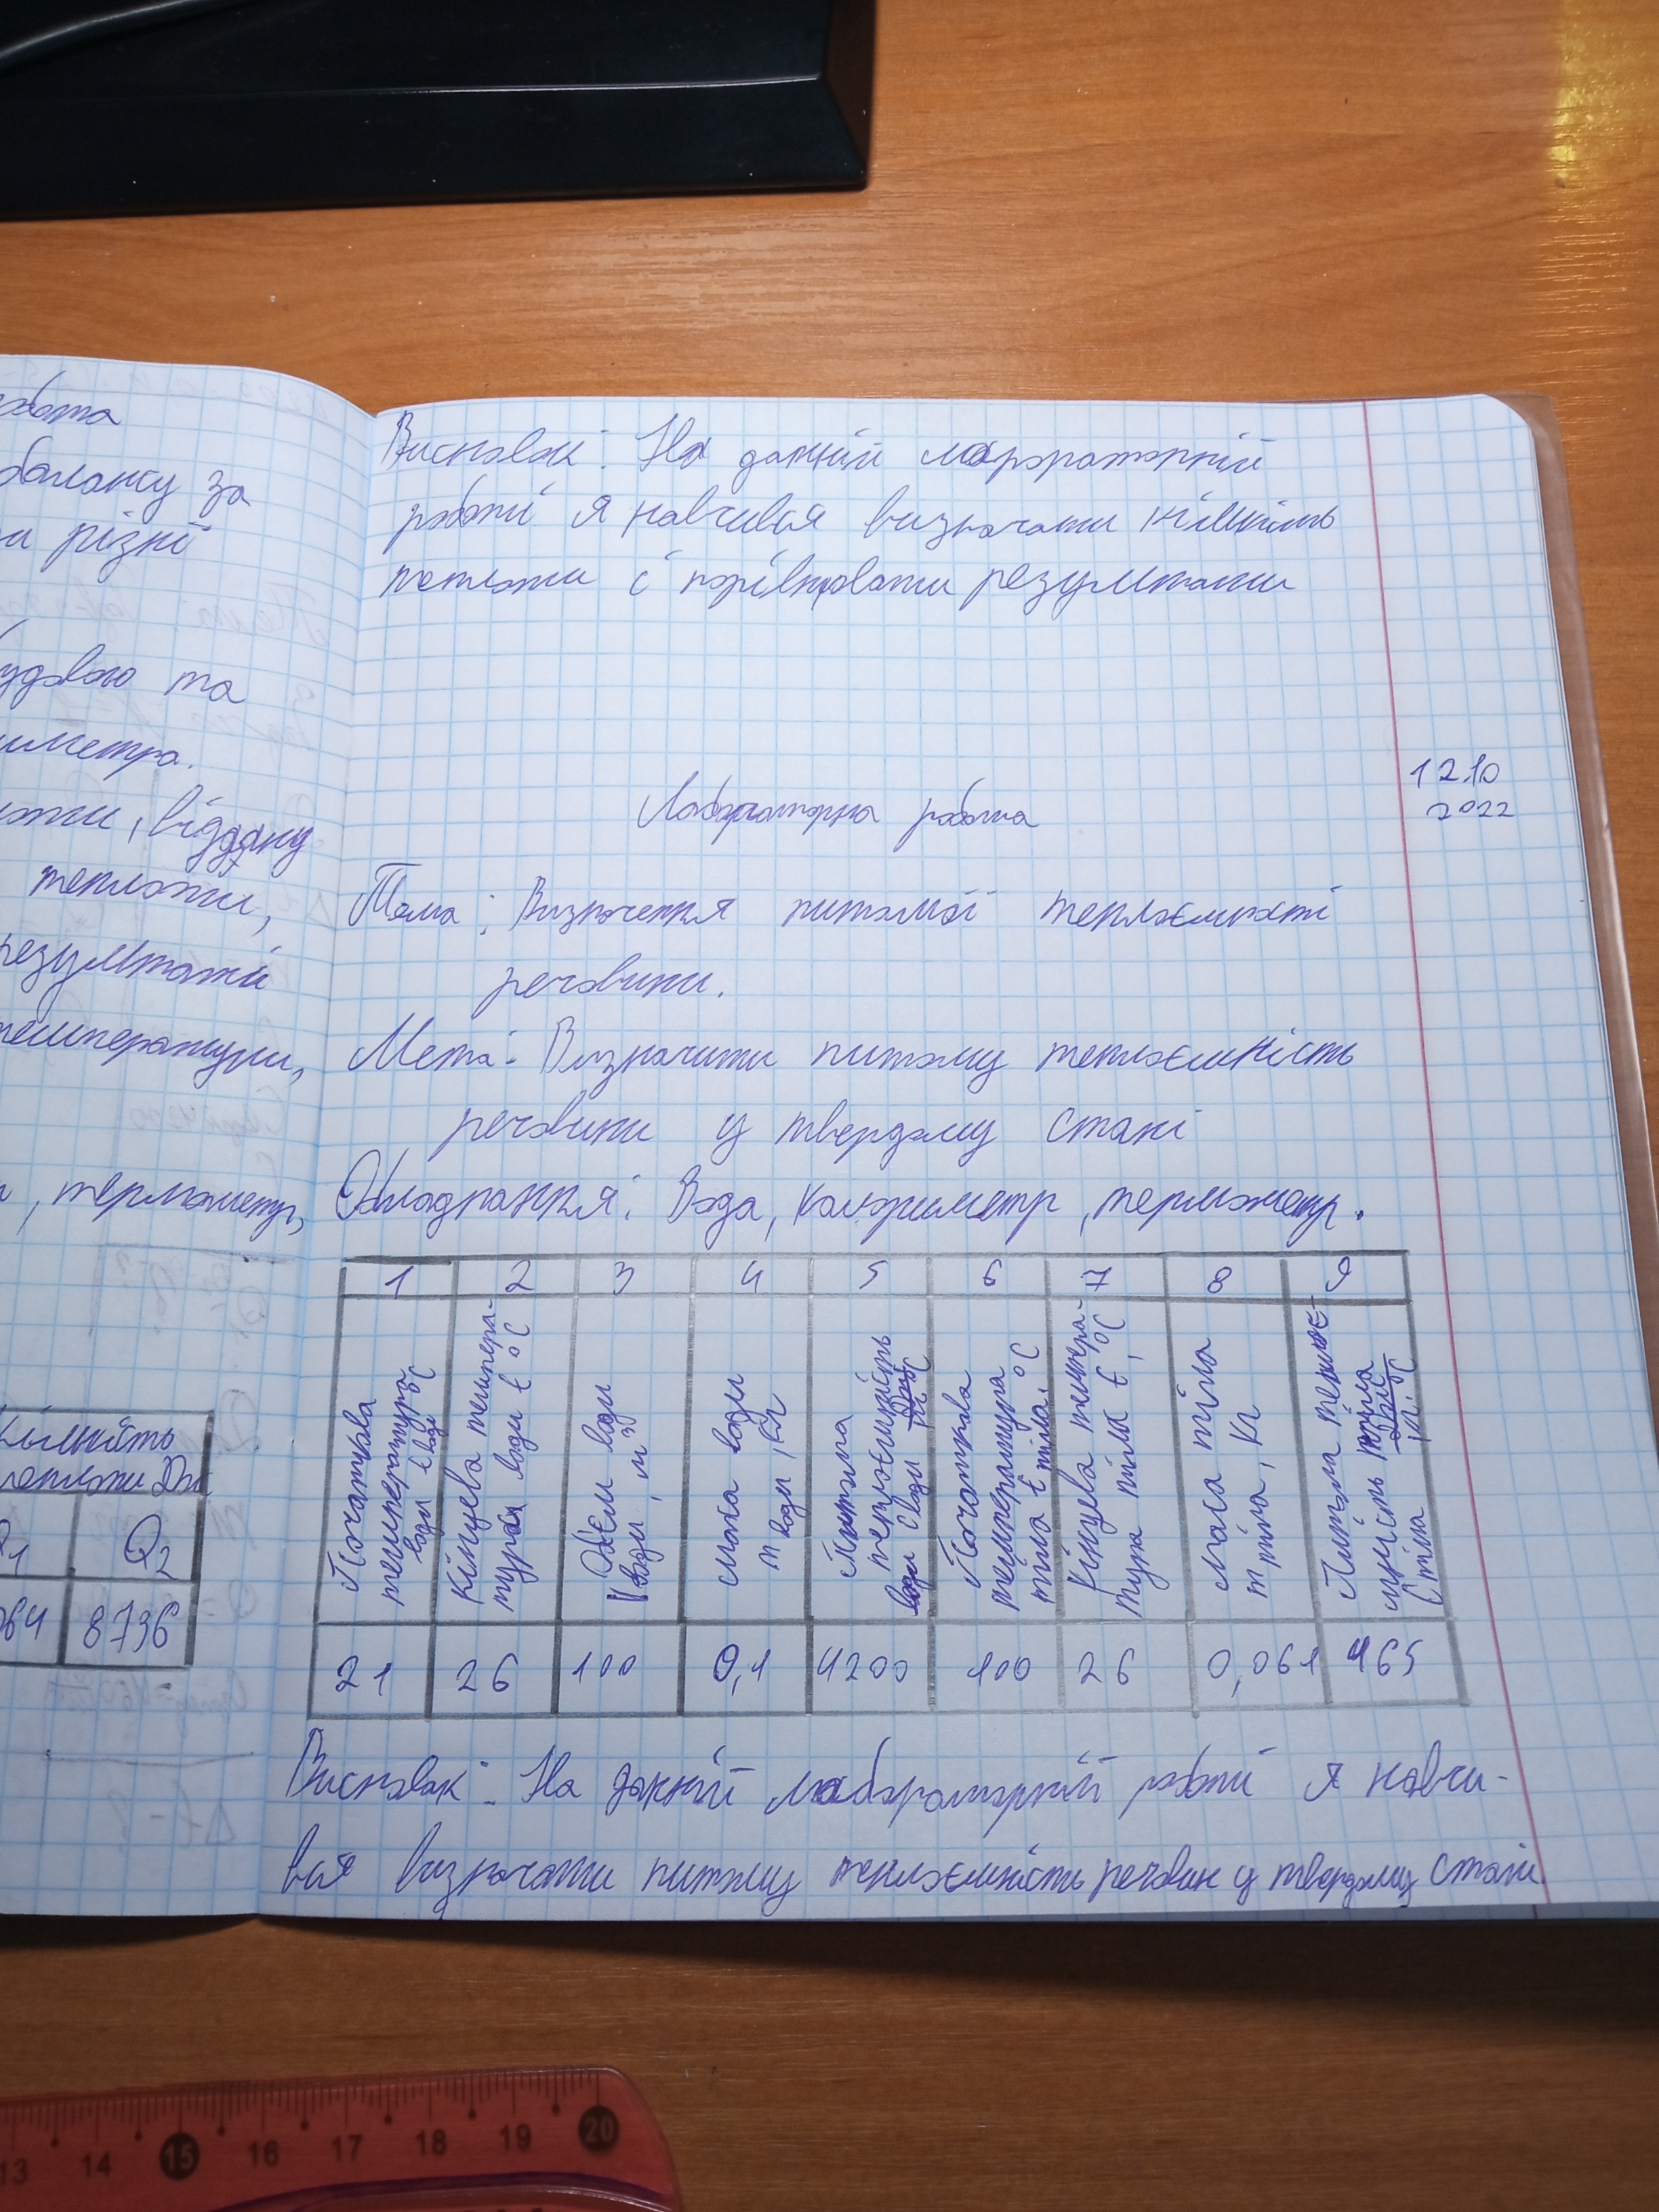 обота
балансу за
а різні
удовою та
иметра.
, віддану
теплоти,
результати
температури,
, термометр,
Кількість
теплоти Дж
Q1 Q2
064 8736
Висновок: На данній лабораторній
роботі я навчився визначати кількість
теплоти і порівнювати результати
12.10
2022
Лабораторна робота
Тема: Визначення питомої теплоємності
речовини.
Мета: Визначити питому теплоємність
речовини у твердому стані
Обладнання: Вода, калориметр, термометр.
1 2 3 4 5 6 7 8 9
Початкова
температура
води t води °C
Кінцева темпера-
тура води t °C
Об'єм води
V води, м3
маса води
m води, кг
Питома
теплоємність
води C води Дж/кг°C
Початкова
температура
тіла t тіла, °C
Кінцева темпера-
тура тіла t, °C
маса тіла
m тіла, кг
Питома теплоє-
мність тіла
C тіла Дж/кг.°C
21 26 100 0,1 4200 100 26 0,061 465
Висновок: На данній лабораторній роботі я навчи-
вся визначати питому теплоємність речовин у твердому стані.
13 14 15 16 17 18 19 20